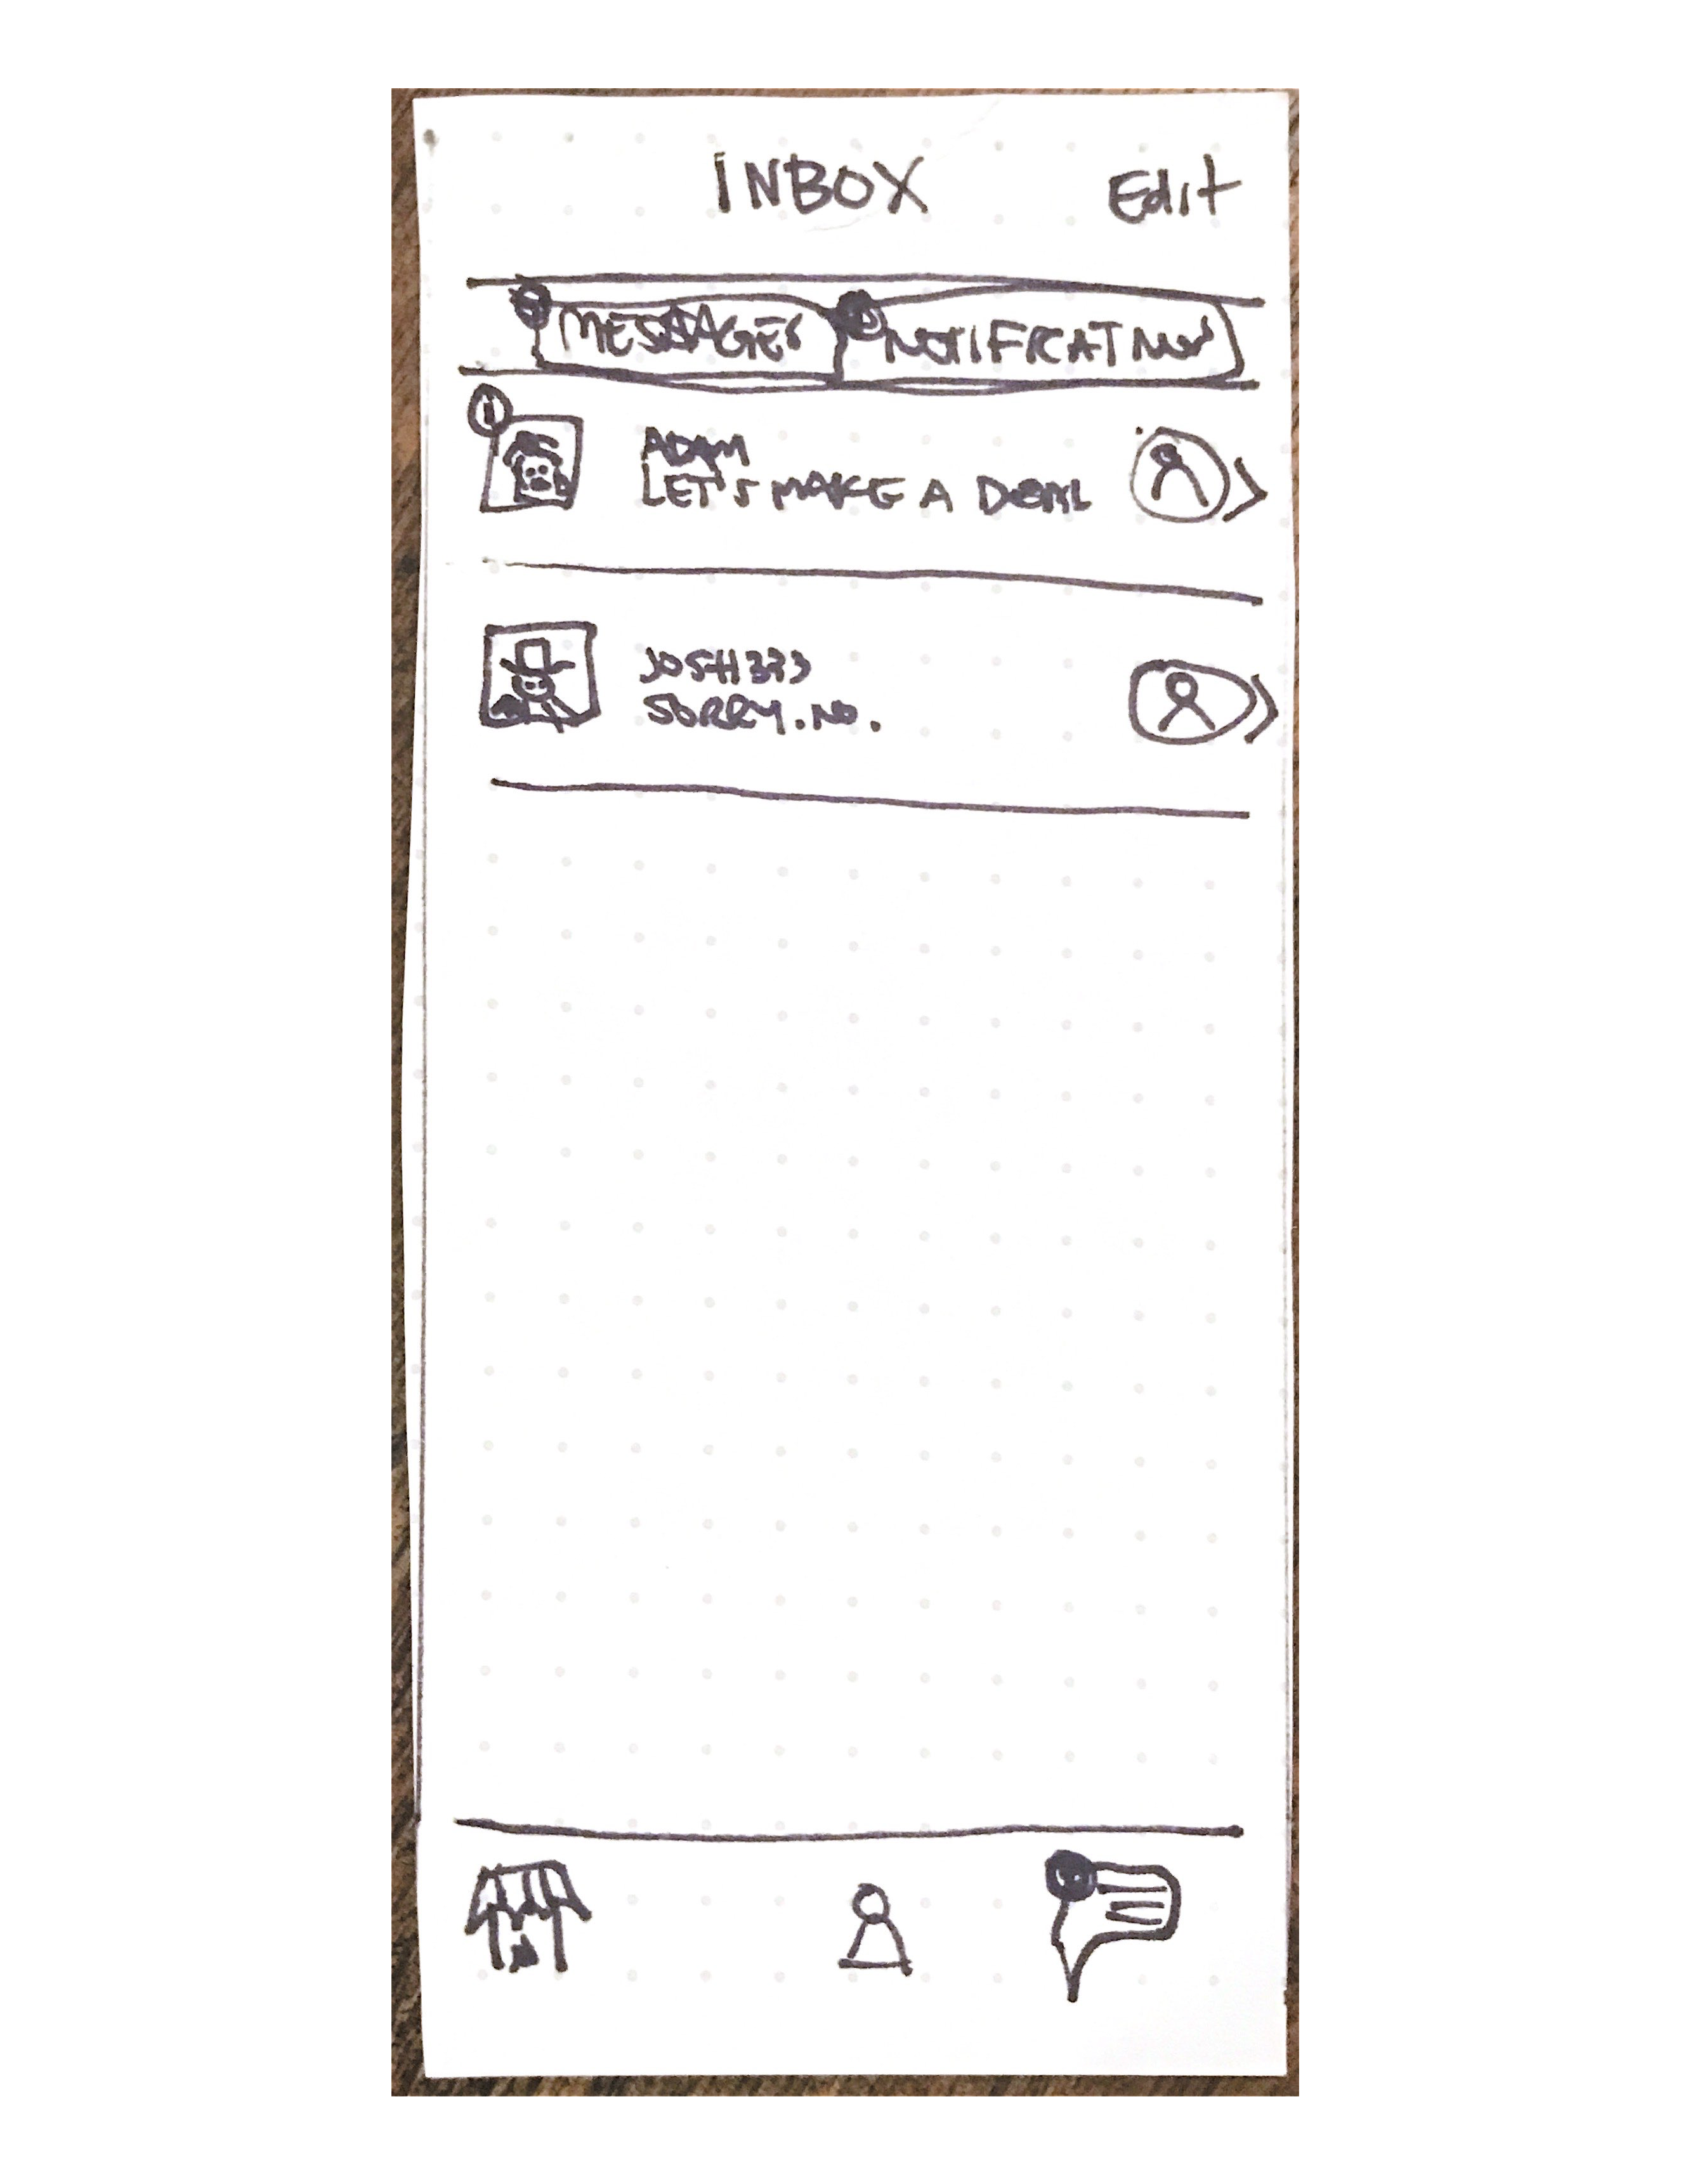 INBOX Edit
MESSAGES NOTIFICATIONS
1
ADAM
LET'S MAKE A DEAL
JOSH333
SORRY. NO.